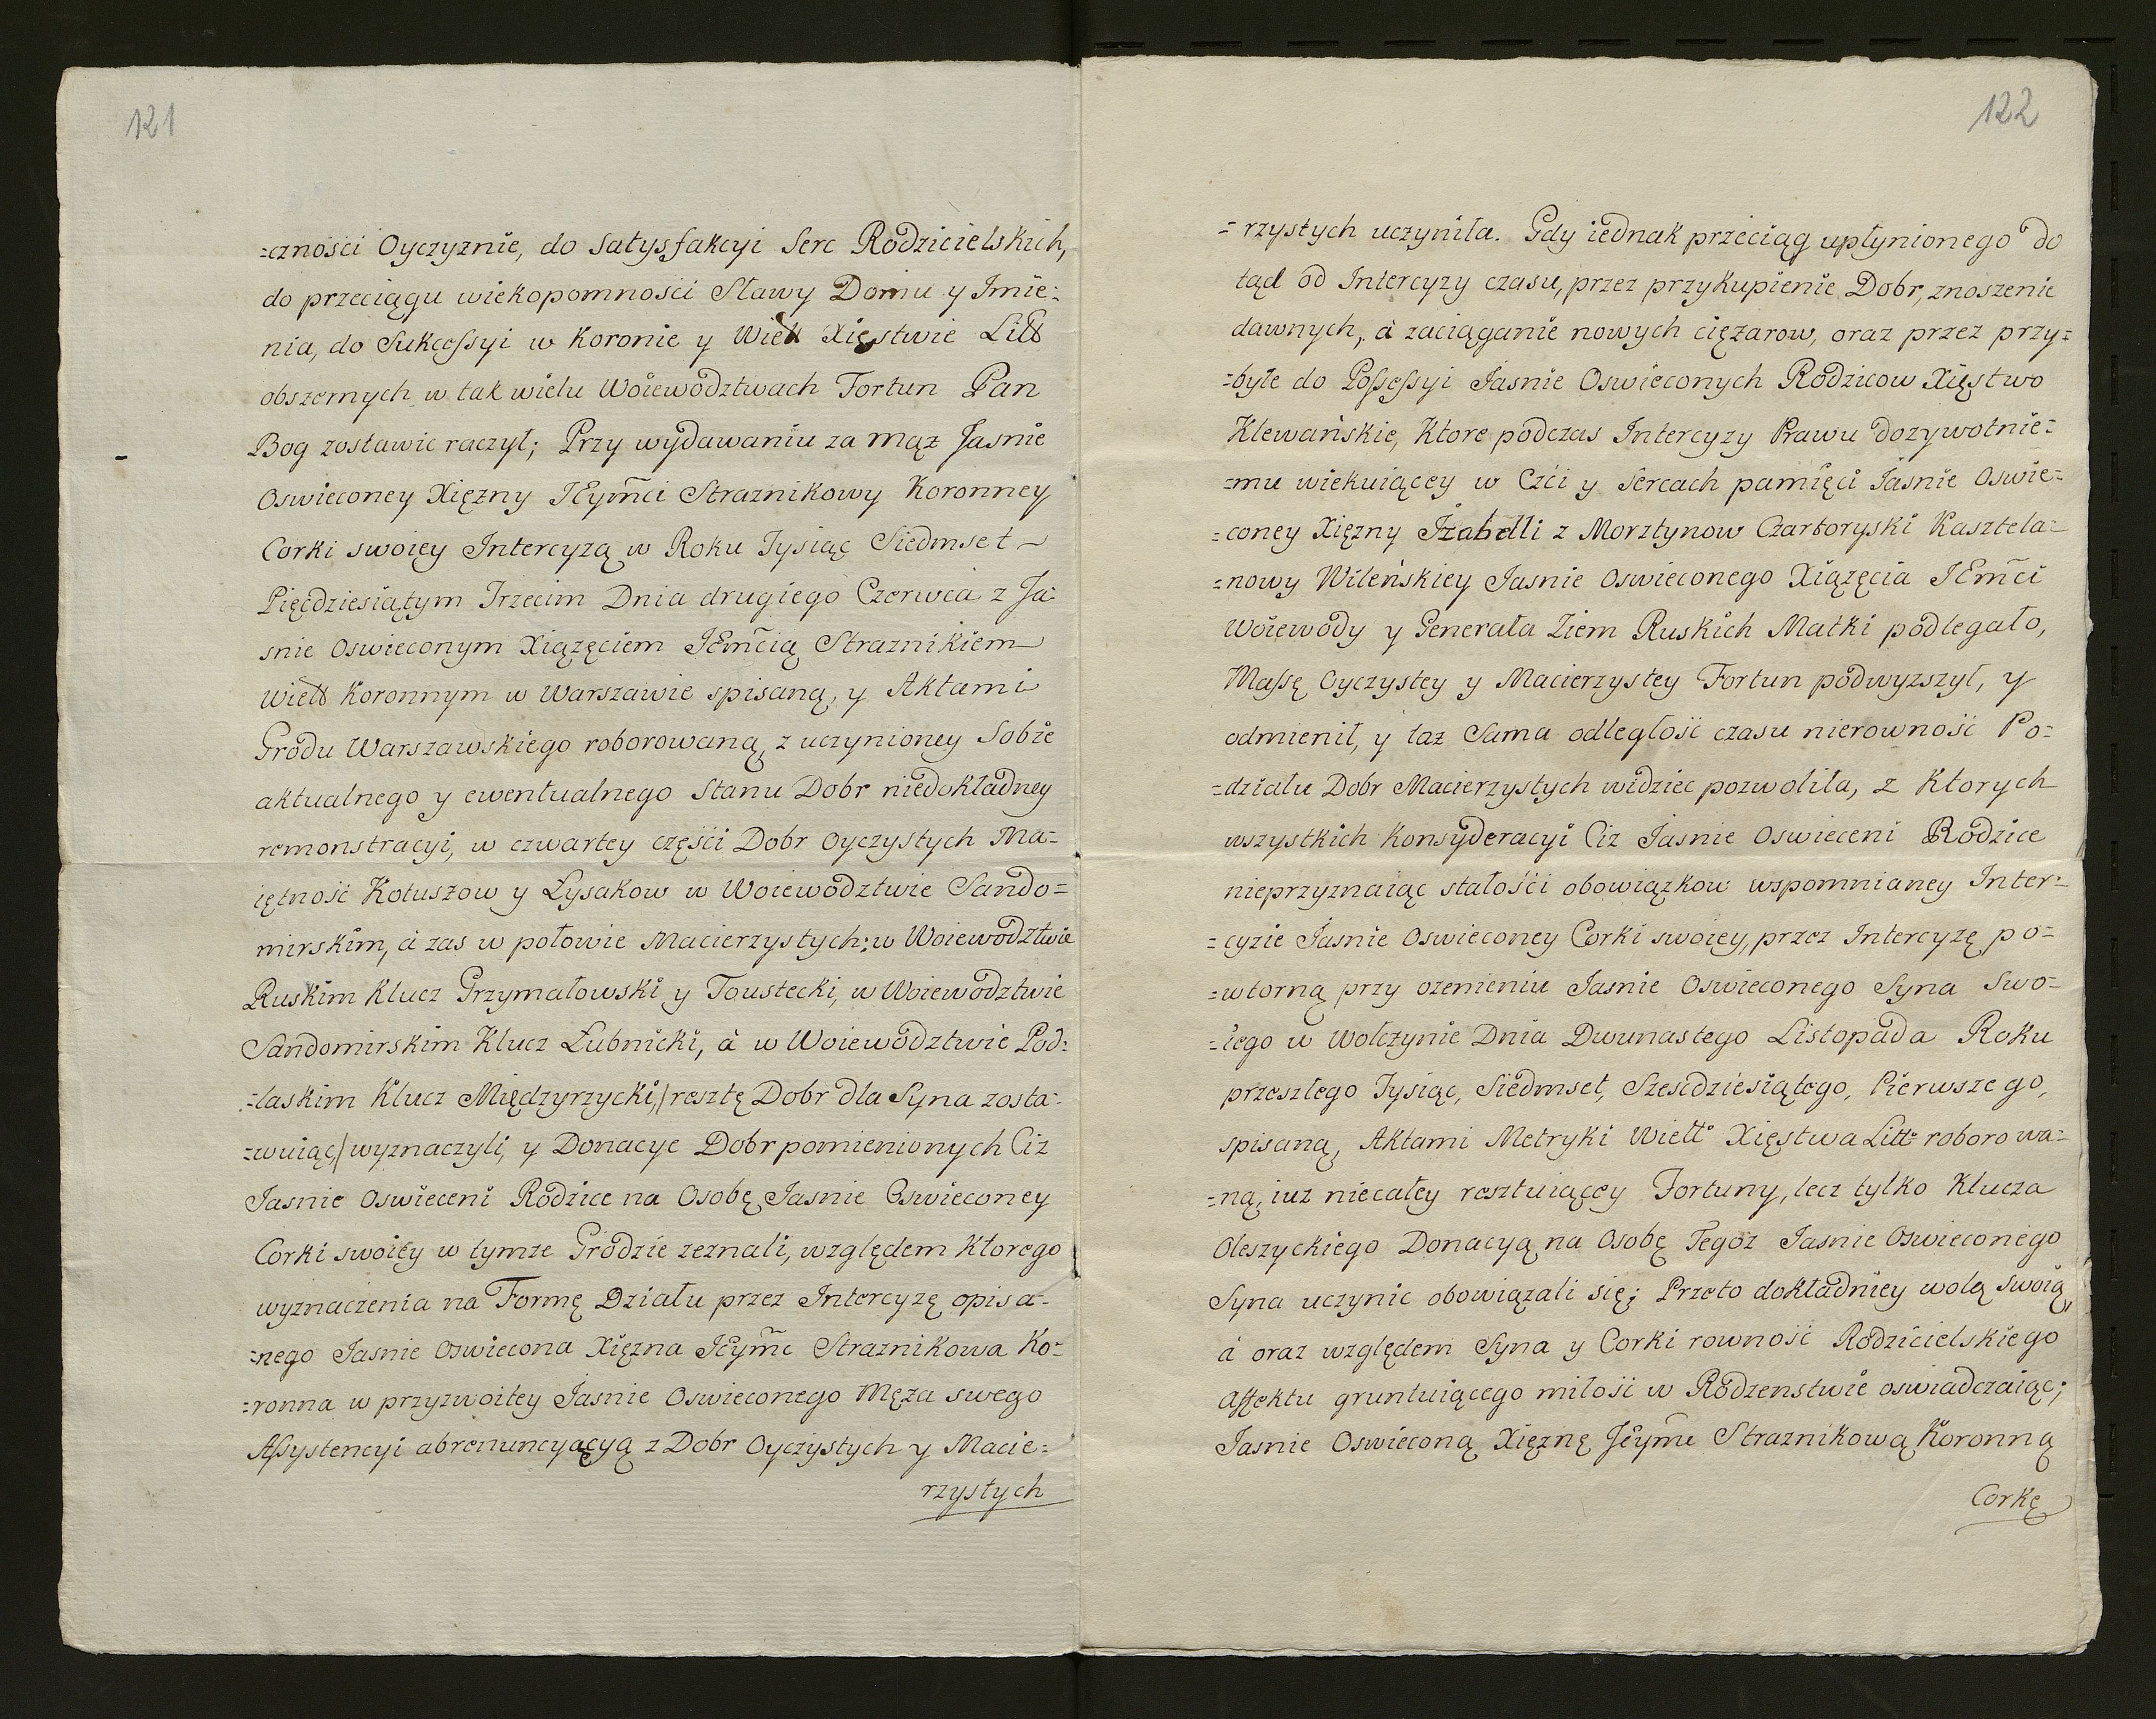 121
=czności Oyczyznie, do Satysfakcyi Serc Rodzicielskich,
do przeciągu wiekopomności Sławy Domu y Imie=
nia, do Sukcessyi w Koronie y Wiell Xięstwie Litt
obszernych w tak wielu Woiewodztwach Fortun Pan
Bog zostawic raczył; Przy wydawaniu za mąz Jasnie
Oswieconey Xięzny JEymci Straznikowy Koronney
Corki swoiey Intercyzą w Roku Tysiąc Siedmset
Pięcdziesiątym Trzecim Dnia drugiego Czerwca z Ja=
snie Oswieconym Xiązęciem JEmcią Straznikiem
Wiell Koronnym w Warszawie spisaną, y Aktami
Grodu Warszawskiego roborowaną, z uczynioney Sobie
aktualnego y ewentualnego Stanu Dobr niedokładney
remonstracyi, w czwartey części Dobr Oyczystych Ma=
iętność Kotuszow y Łysakow w Woiewodztwie Sando=
mirskim, à zas w połowie Macierzystych: w Woiewodztwie
Ruskim Klucz Grzymałowski y Toustecki, w Woiewodztwie
Sandomirskim Klucz Łubnicki, à w Woiewodztwie Pod=
=laskim Klucz Międzyrzycki,/resztę Dobr dla Syna zosta=
=wuiąc/wyznaczyli, y Donacye Dobr pomienionych Ciz
Jasnie Oswieceni Rodzice na Osobę Jasnie Oswieconey
Corki swoiey w tymze Grodzie zeznali, względem Ktorego
wyznaczenia na Formę Działu przez Intercyzę opisa=
=nego Jasnie Oswiecona Xięzna JEymc Straznikowa Ko=
=ronna w przyzwoitey Jasnie Oswieconego Męza swego
Assystencyi abrenuncyacyą z Dobr Oyczystych y Macie=
rzystych
122
=rzystych uczyniła. Gdy iednak przeciąg upłynionego do
tąd od Intercyzy czasu, przez przykupienie Dobr, znoszenie
dawnych, à zaciąganie nowych cięzarow, oraz przez przy=
=byłe do Possessyi Jasnie Oswieconych Rodzicow Xięstwo
Klewańskie, Ktore podczas Intercyzy Prawu dozywotnie=
=mu wiekuiącey w Czci y Sercach pamięci Jasnie Oswie=
=coney Xięzny Izabelli z Morztynow Czartoryski Kasztela=
=nowy Wileńskiey Jasnie Oswieconego Xiązęcia JEmci
Woiewody y Generała Ziem Ruskich Matki podlegało,
Massę Oyczystey y Macierzystey Fortun podwyzszył, y
odmienił, y taz Sama odległość czasu nierowność Po=
=działu Dobr Macierzystych widziec pozwoliła, z Ktorych
wszystkich Konsyderacyi Ciz Jasnie Oswieceni Rodzice
nieprzyznaiąc stałości obowiązkow wspomnianey Inter=
=cyzie Jasnie Oswieconey Corki swoiey, przez Intercyzę po=
=wtorną przy ozenieniu Jasnie Oswieconego Syna Swo=
=iego w Wołczynie Dnia Dwunastego Listopada Roku
przeszłego Tysiąc, Siedmset, Szescdziesiątego, Pierwszego,
spisaną, Aktami Metryki Wiell Xięstwa Litt roborowa=
=ną, iuz niecałey resztuiącey Fortuny, lecz tylko Klucza
Oleszyckiego Donacyą na Osobę Tegoz Jasnie Oswieconego
Syna uczynic obowiązali się; Przeto dokładniey wolą swoią,
à oraz względem Syna y Corki rowność Rodzicielskiego
Affektu gruntuiącego miłość w Rodzenstwie oswiadczaiąc;
Jasnie Oswieconą Xięznę JEymc Straznikową Koronną
Corkę